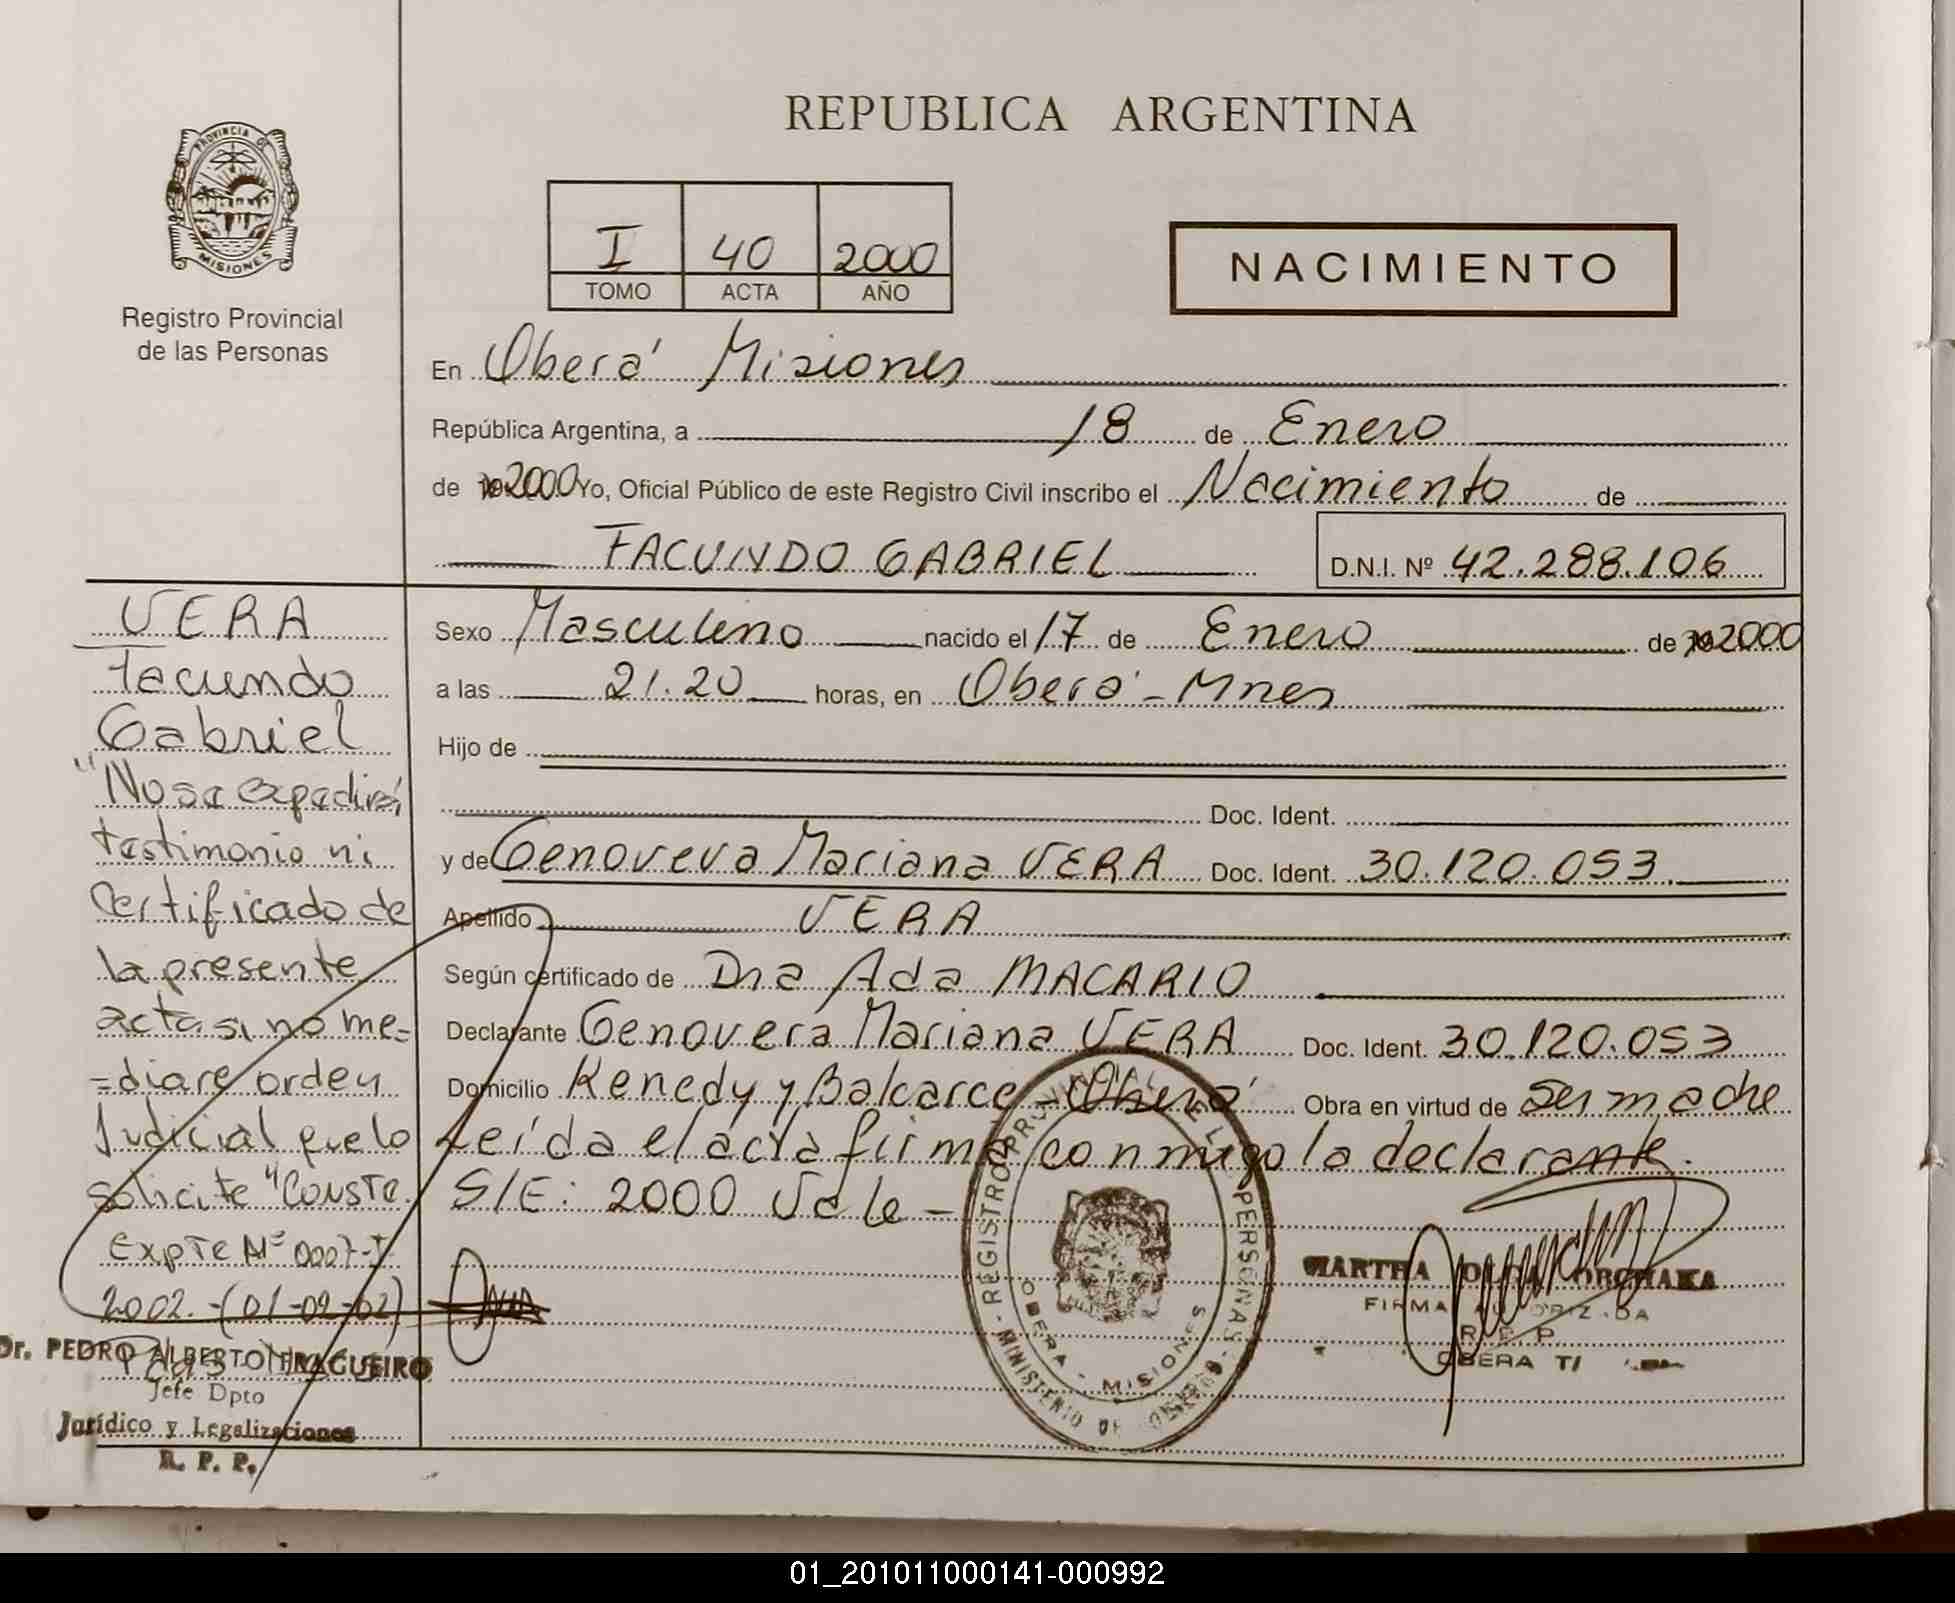 REPUBLICA ARGENTINA
PROVINCIA DE
MISIONES
Registro Provincial
de las Personas
I 40 2000
TOMO ACTA AÑO
NACIMIENTO
En Oberá Misiones
República Argentina, a 18 de Enero
de 2000 Yo, Oficial Público de este Registro Civil inscribo el Nacimiento de
FACUNDO GABRIEL D.N.I. Nº 42.288.106
Sexo Masculino nacido el 17 de Enero de 2000
a las 21.20 horas, en Oberá - Mnes
Hijo de
Doc. Ident.
y de Genoveva Mariana VERA Doc. Ident. 30.120.053
Apellido VERA
Según certificado de Dra Ada MACARIO
Declarante Genoveva Mariana VERA Doc. Ident. 30.120.053
Domicilio Kenedy y Balcarce - Oberá Obra en virtud de ser madre
Leída el acta firma conmigo la declarante.
S/E: 2000 Vale -
VERA
Facundo
Gabriel
"No se expedirá
testimonio ni
Certificado de
la presente
acta si no me=
=diare orden
Judicial que lo
solicite" CONSTE.
Expte Nº 0007-I-
2002.-(01-02-02)
Pdas
Dr. PEDRO ALBERTO FRAGUEIRO
Jefe Dpto
Jurídico y Legalizaciones
R. P. P.
REGISTRO PROVINCIAL DE LAS PERSONAS - MINISTERIO DE GOBIERNO
OBERA - MISIONES
MARTHA
FIRMA AUTORIZADA
R. P. P.
OBERA
01_201011000141-000992